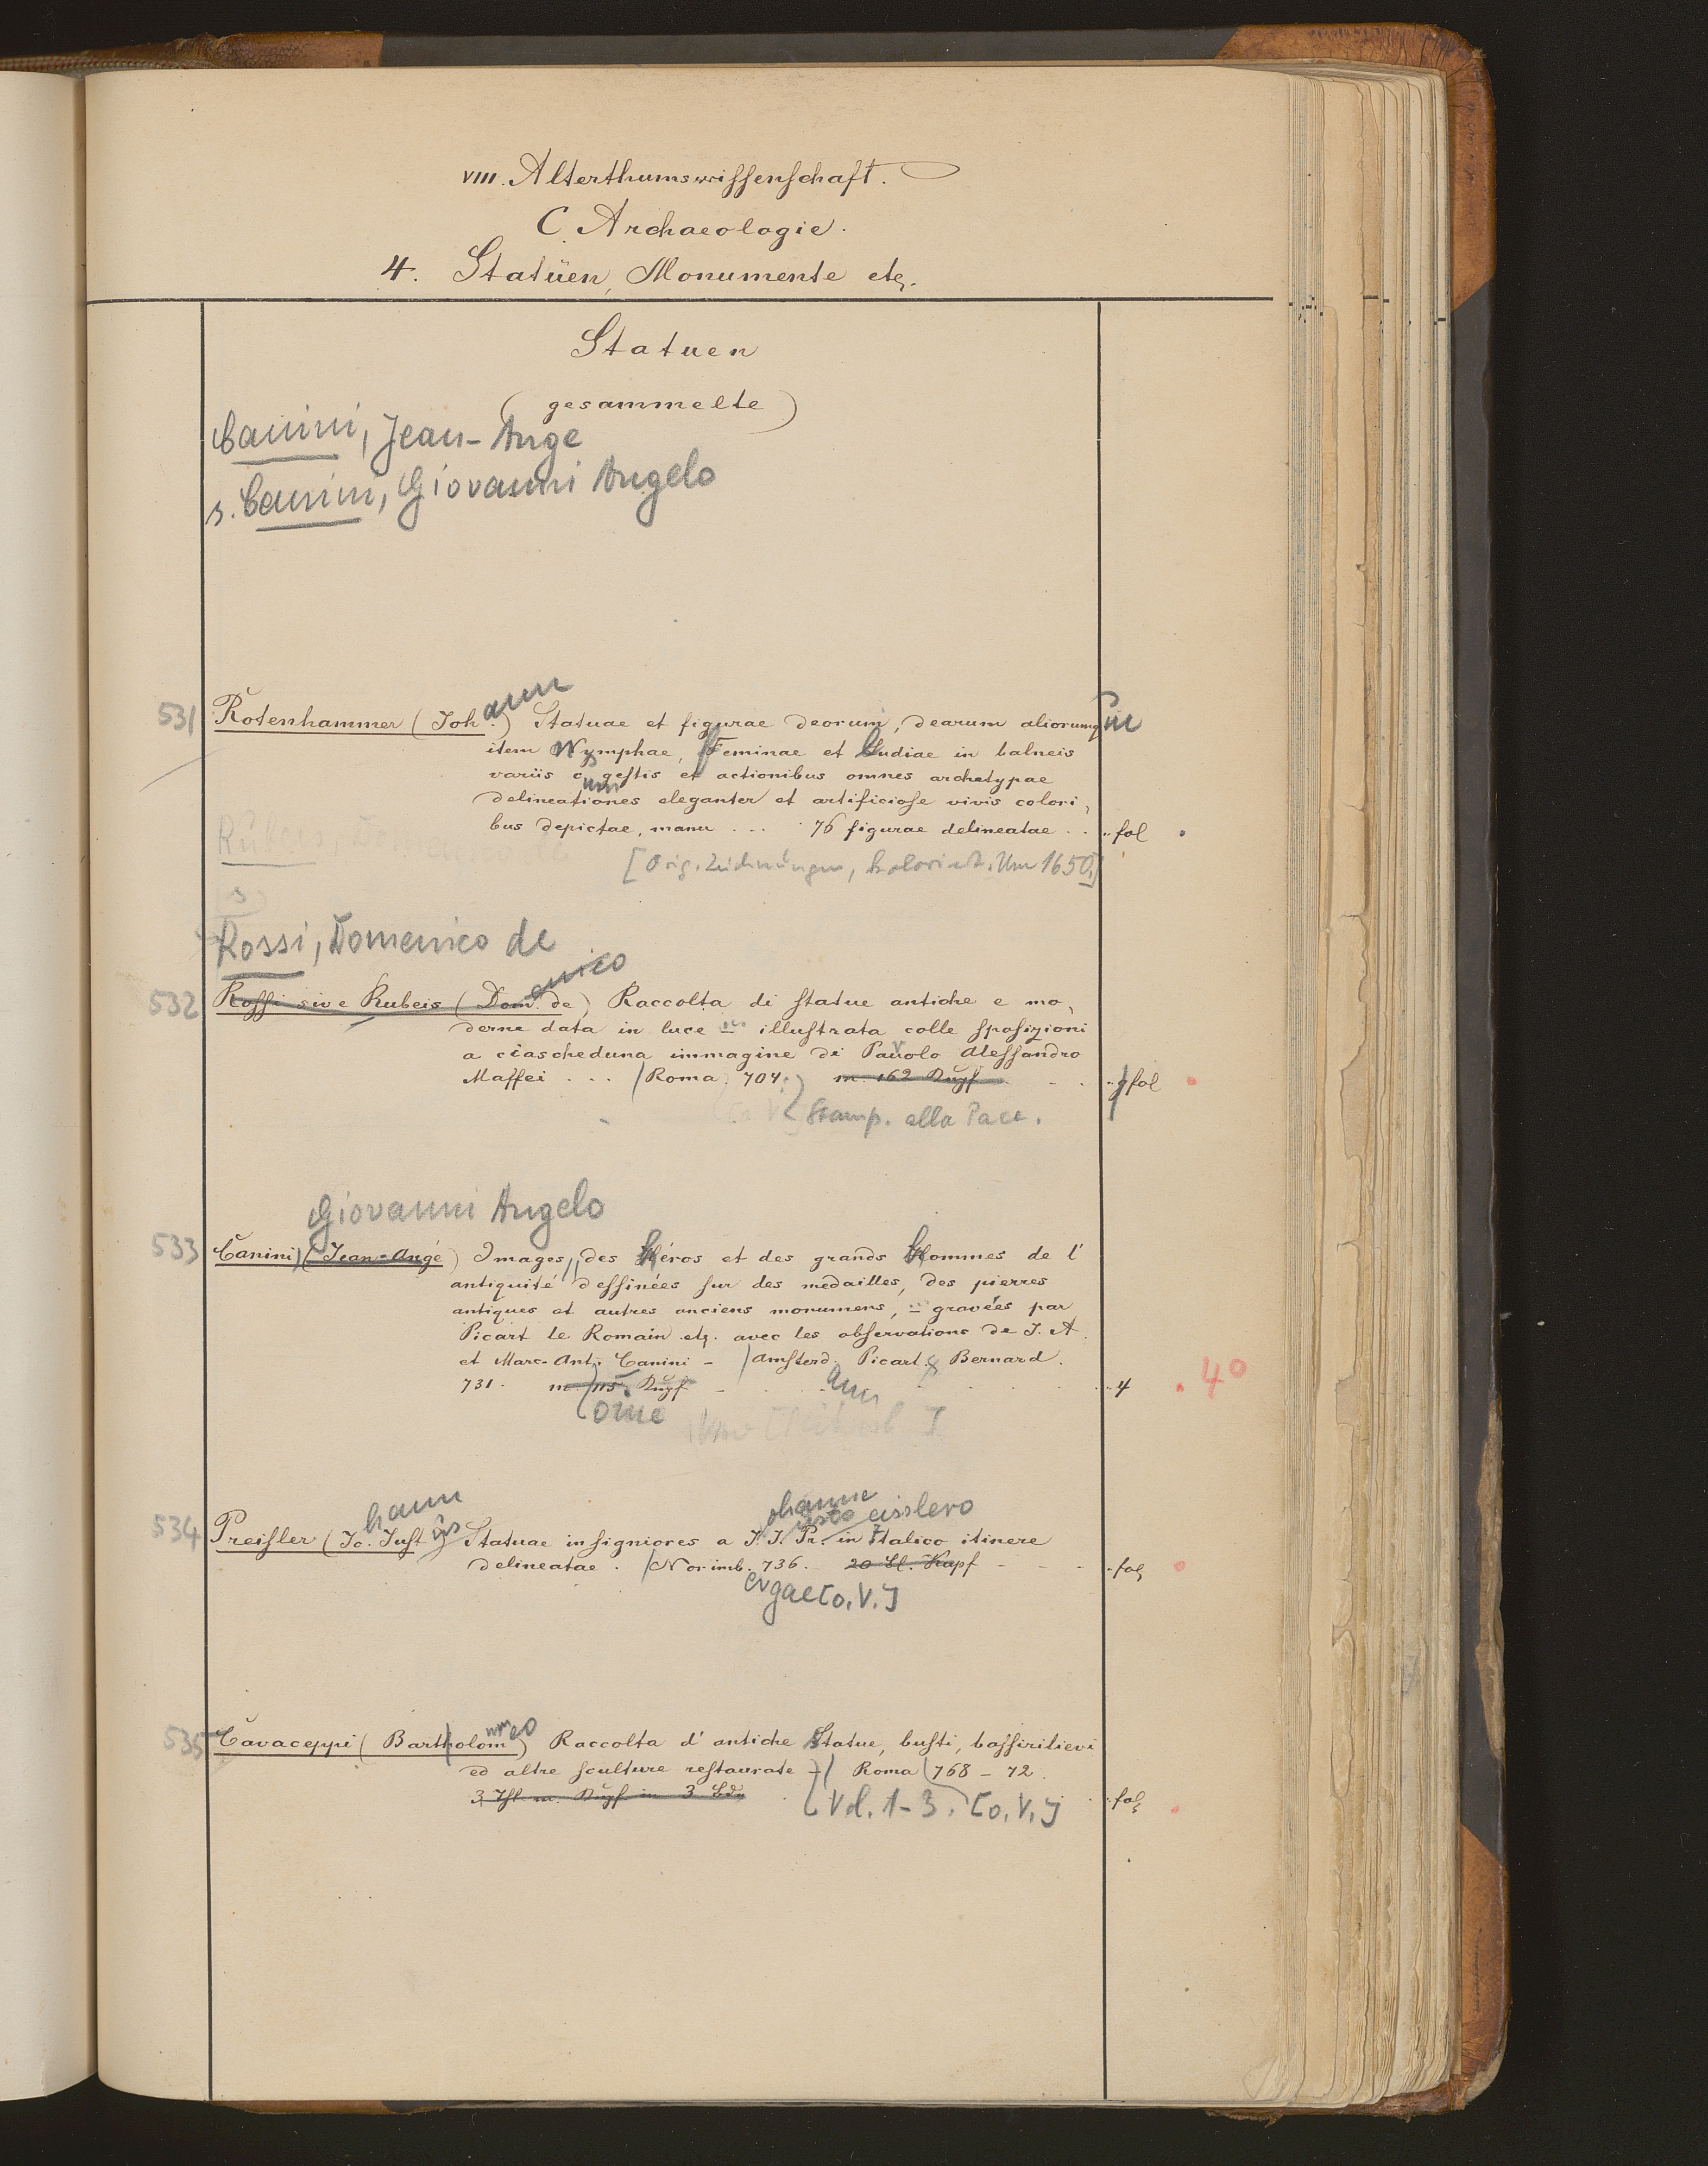 VIII. Alterthumswissenschaft.
C. Archaeologie.
4. Statüen, Monumente etc.
Statuen
(gesammelte)
Canini, Jean-Ange
s. Canini, Giovanni Angelo
531 Rotenhammer (Johann) Statuae et figurae deorum, dearum aliorumq
item Nymphae, Feminae et Ludiae in balneis
variis cum gestis et actionibus omnes archetypae
delineationes eleganter et artificiose vivis colori,
bus depictae, manu ... 76 figurae delineatae .. fol
[Orig. Zeichnungen, koloriert. Um 1650.]
Rubeis, Domenico de
s
Rossi, Domenico de
532 Rossi sive Rubeis (Domenico de) Raccolta di statue antiche e mo,
derne data in luce – illustrata colle sposizioni
a ciascheduna immagine di Pavolo Alessandro
Maffei ... Roma 704. m. 162 Kupf fol
Stamp. alla Pace.
Giovanni Angelo
533 Canini, (Jean-Ange) Images, des héros et des grands hommes de l'
antiquité dessinées sur des medailles, des pierres
antiques et autres anciens monumens, – gravées par
Picart le Romain etc. avec les observations de J. A.
et Marc-Ant. Canini – Amsterd. Picart & Bernard.
731. m. 115. Kupf 4 4°
oine am
534 Preisler (Johann Justus) Statuae insigniores a Johanne Justo Preisslero in Italico itinere
delineatae. Norimb. 736. 20 Bl. Kupf fol
ergae [o. V.]
535 Cavaceppi (Bartholommeo) Raccolta d'antiche Statue, busti, bassirilievi
ed altre sculture restaurate – Roma 768 – 72.
3 Thl. m. Kupf in 3 Bdn fol
Vol. 1-3. [o. V.]